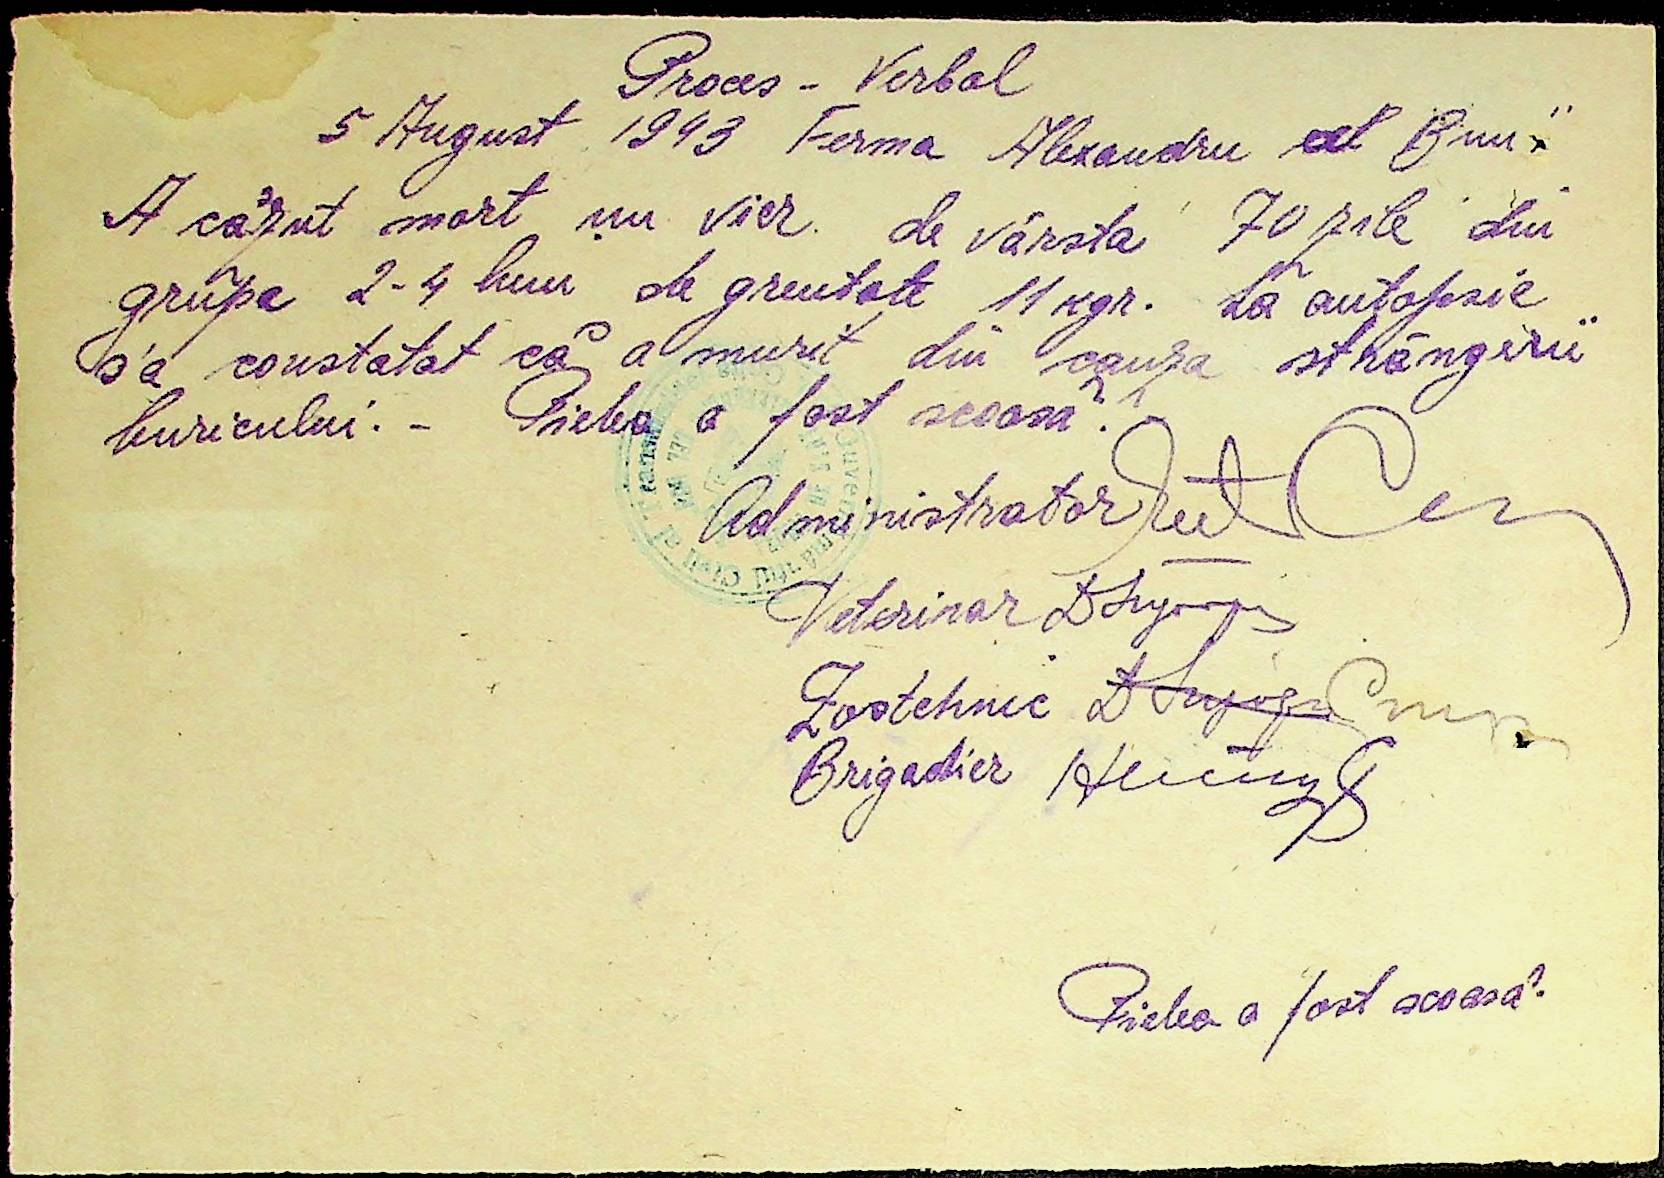 Proces - Verbal
5 August 1943 Ferma Alexandru cel Bun
A căzut mort un vier de vârsta 70 zile din
grupa 2-4 luni de greutate 11 kgr. La autopsie
s'a constatat că a murit din cauza strângerii
buricului. - Pielea a fost scoasă.
Administrator
Veterinar
Zootehnic
Brigadier
Pielea a fost scoasă.